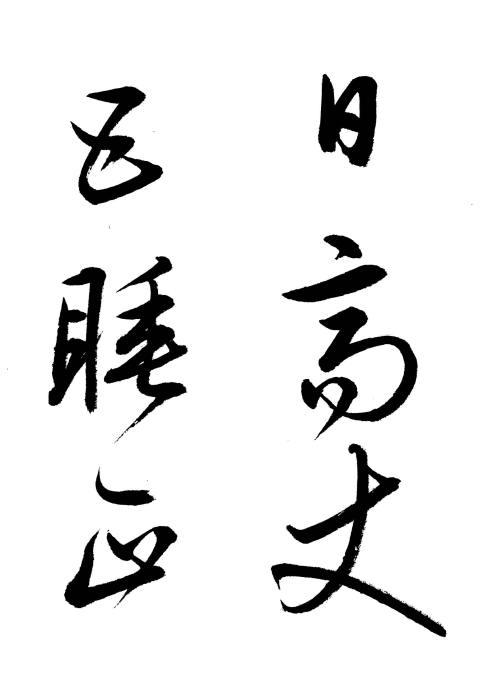 日高丈
五睡正